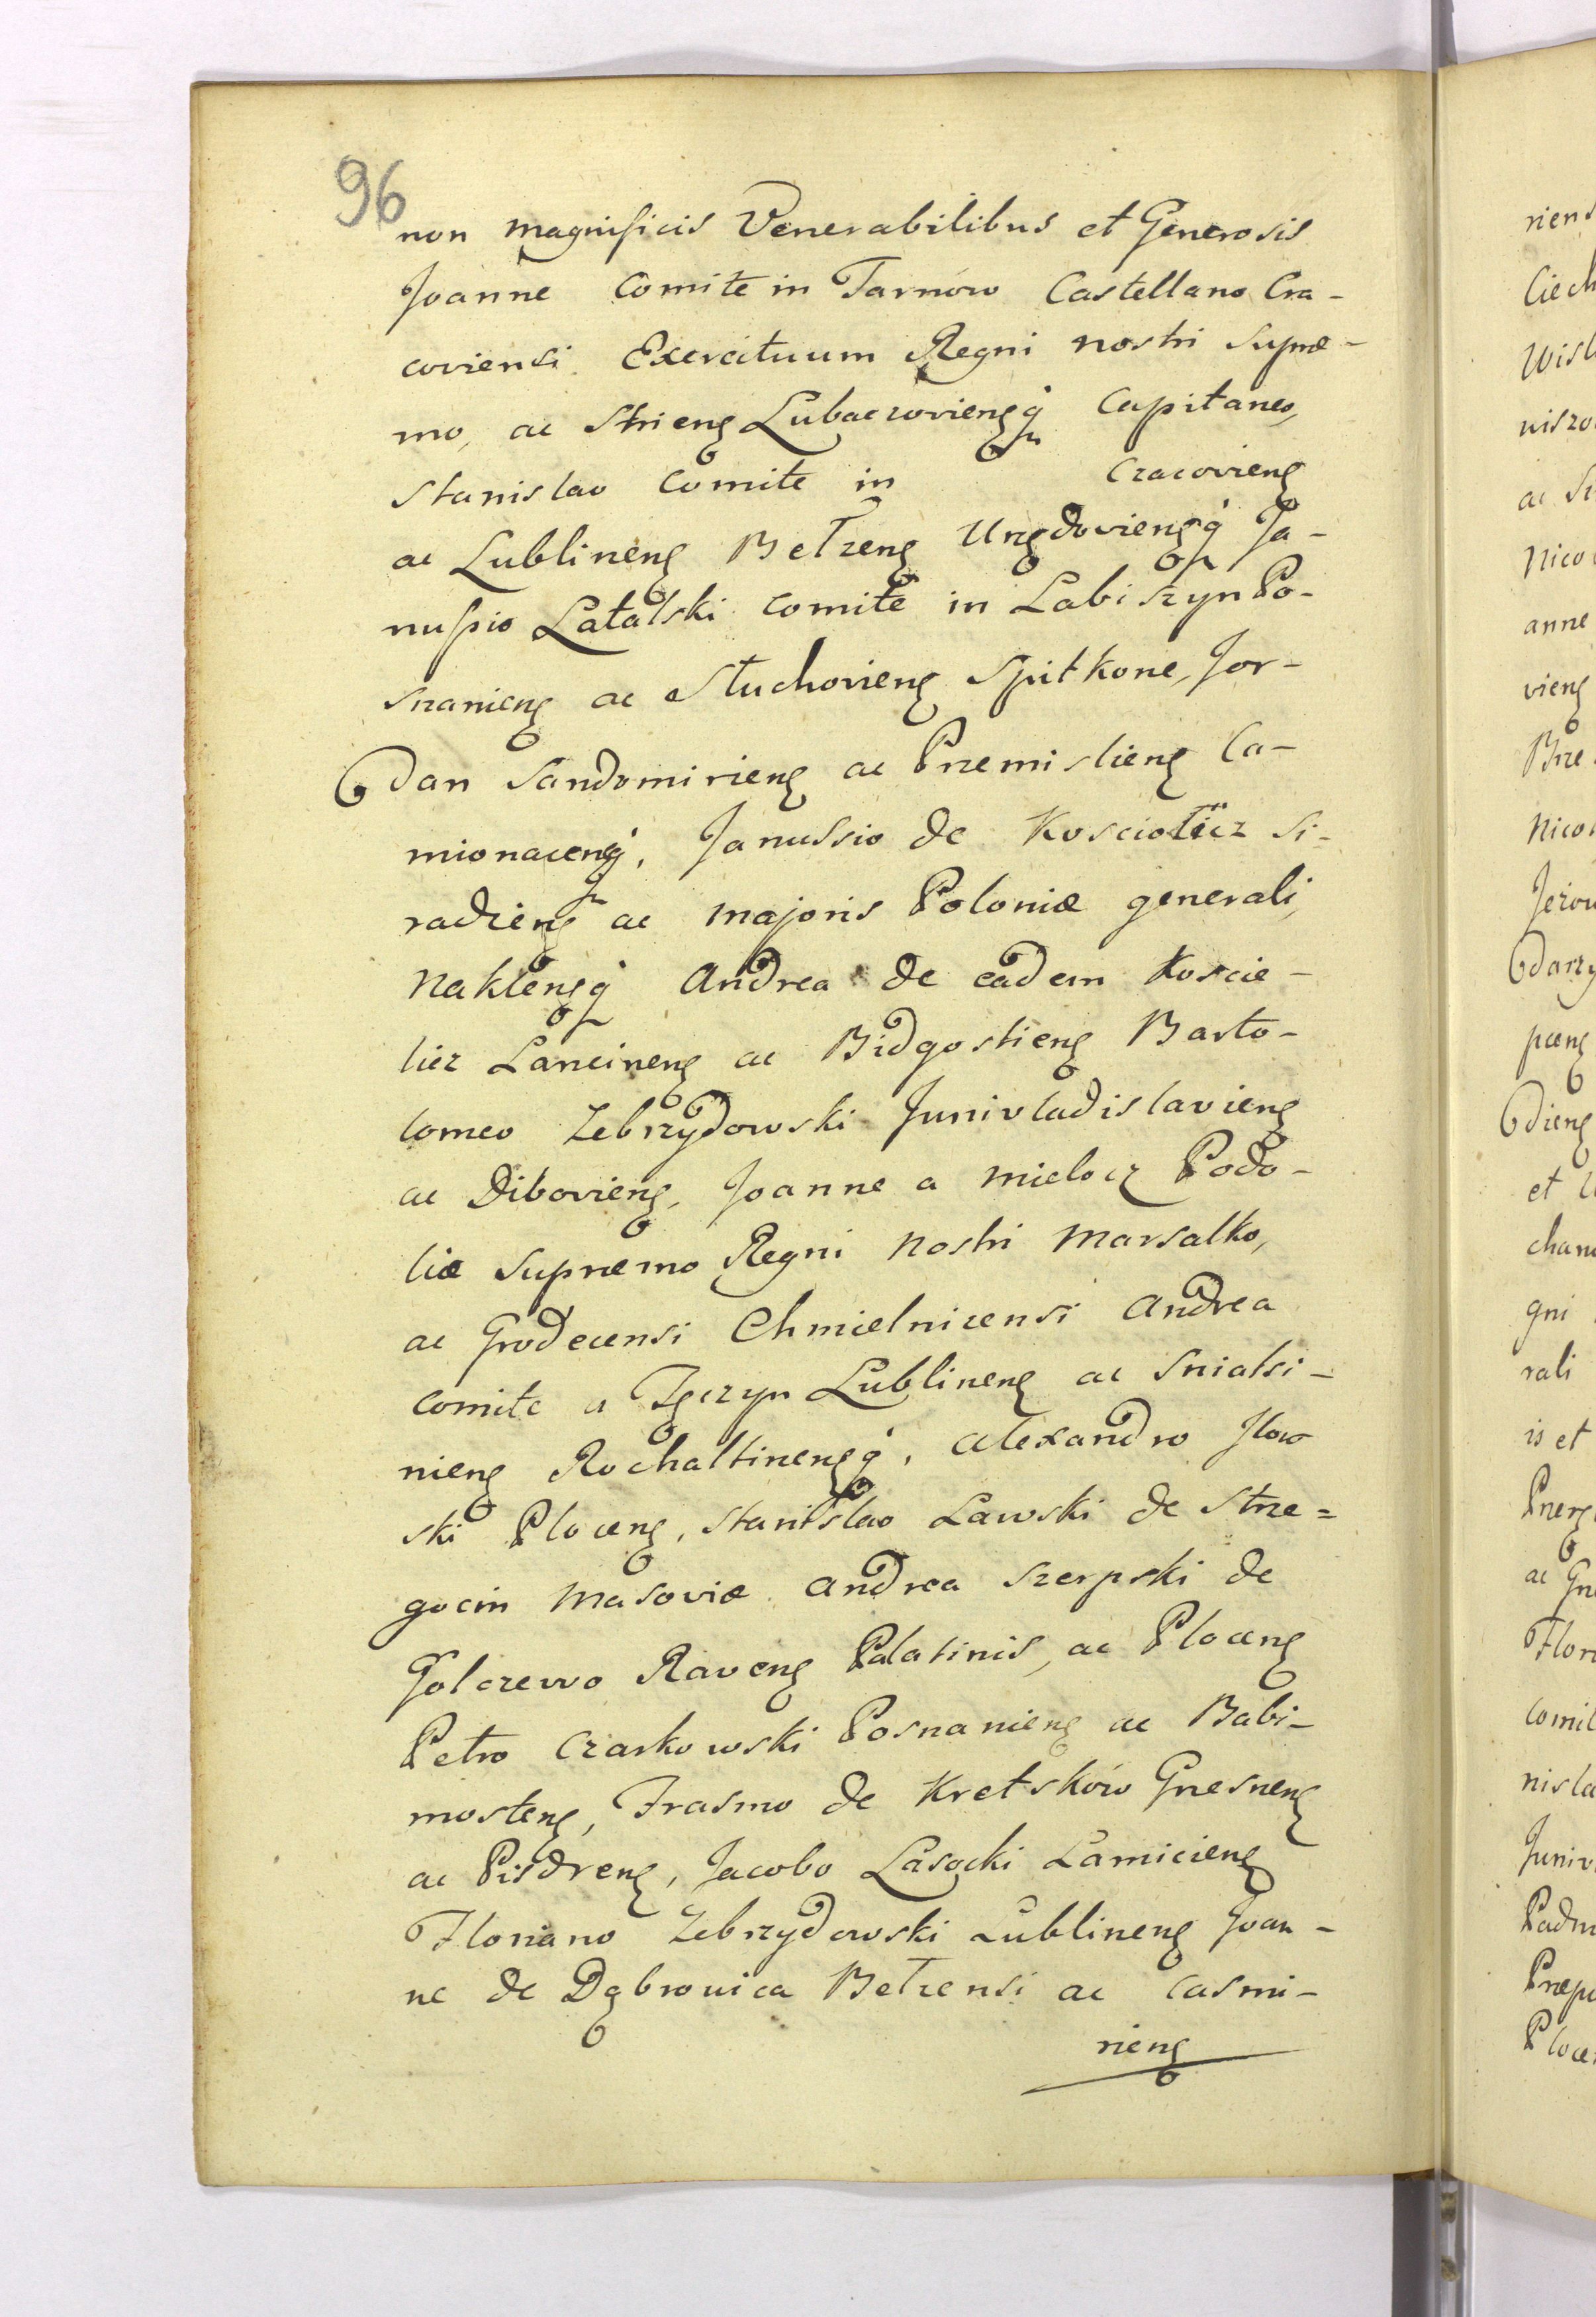 96
non magnificis Venerabilibus et Generosis
Joanne Comite in Tarnow Castellano Cra-
coviensi Exercituum Regni nostri supræ-
mo, ac Strieng Lubaczoviengq Capitaneo,
Stanislao Comite in Cracovieng
ac Lublineng Betzeng Ungdoviengq Ja-
nuſsio Latalski comite in Labiszyn Po-
snanieng ac Stuchovieng Spitkone, Jor-
dan Sandomirieng ac Przemislieng Ca-
mionacengq, Janussio de Kosciolicz Si-
radieng ac majoris Poloniæ generali,
Naktengq Andrea de eadem Koscie-
licz Lancineng ac Bidgostieng Barto-
lomeo Zebrzydowski Junivladislavieng
ac Dibovieng, Joanne a Mielocz Podo-
liæ supræmo Regni Nostri Marsalko,
ac Grodecensi Chmielnicensi Andrea
comite a Tęczyn Lublineng ac Sniatsi-
nieng Rochaltinengq, Alexandro Jlow
ski Ploceng, Stanislao Lawski de Strze=
gocin Masoviæ Andrea Szerpski de
Golczewo Raveng Palatinis, ac Ploceng
Petro Czarkowski Posnanieng ac Babi-
mosteng, Frasmo de Kretsków Gnesneng
ac Pisdreng, Jacobo Lasocki Lamicieng
Floriano Zebrzydowski Lublineng Joan-
ne de Dąbrovica Betzensi ac Casmi-
rieng
riens
Ciech
Wisl
niszo
ac Si
Nico
anne
vieng
Brze
Nico
Jerou
darzy
pceng
dieng
et U
chan
gni
rali
is et
Przez
ac Gn
Flor
comit
nisla
Juniv
Padni
Præpo
Ploce